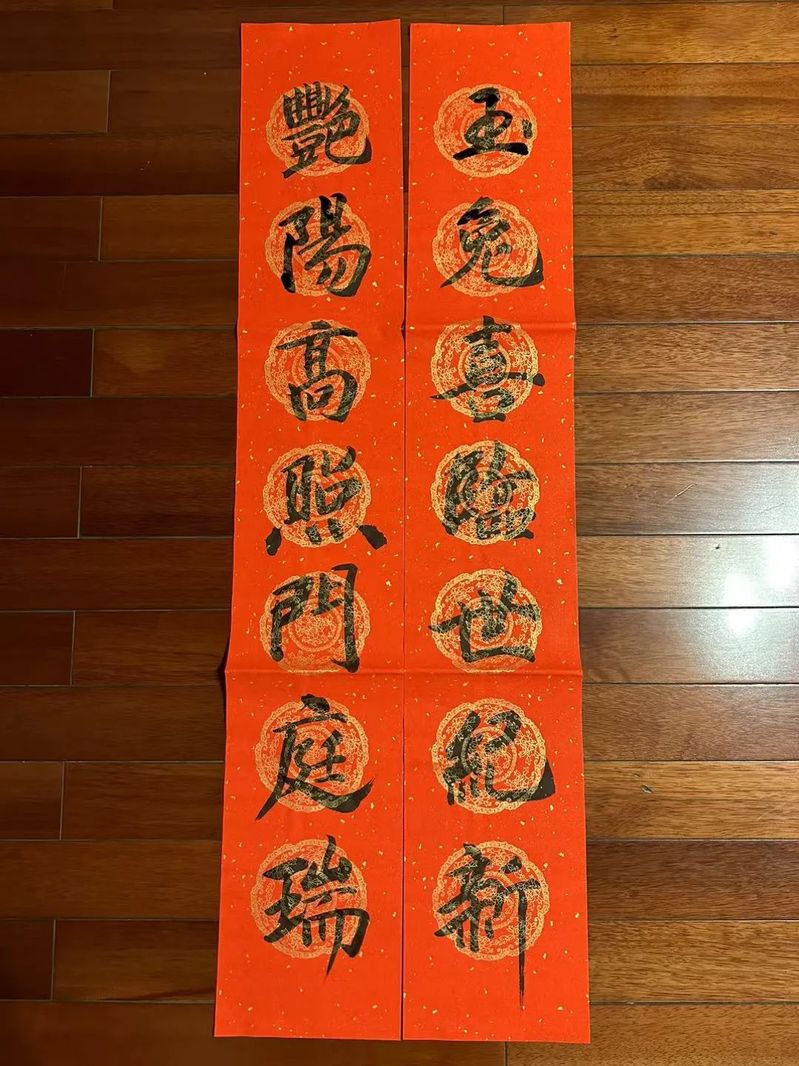 玉兔喜臨世紀新
艷陽高照門庭瑞